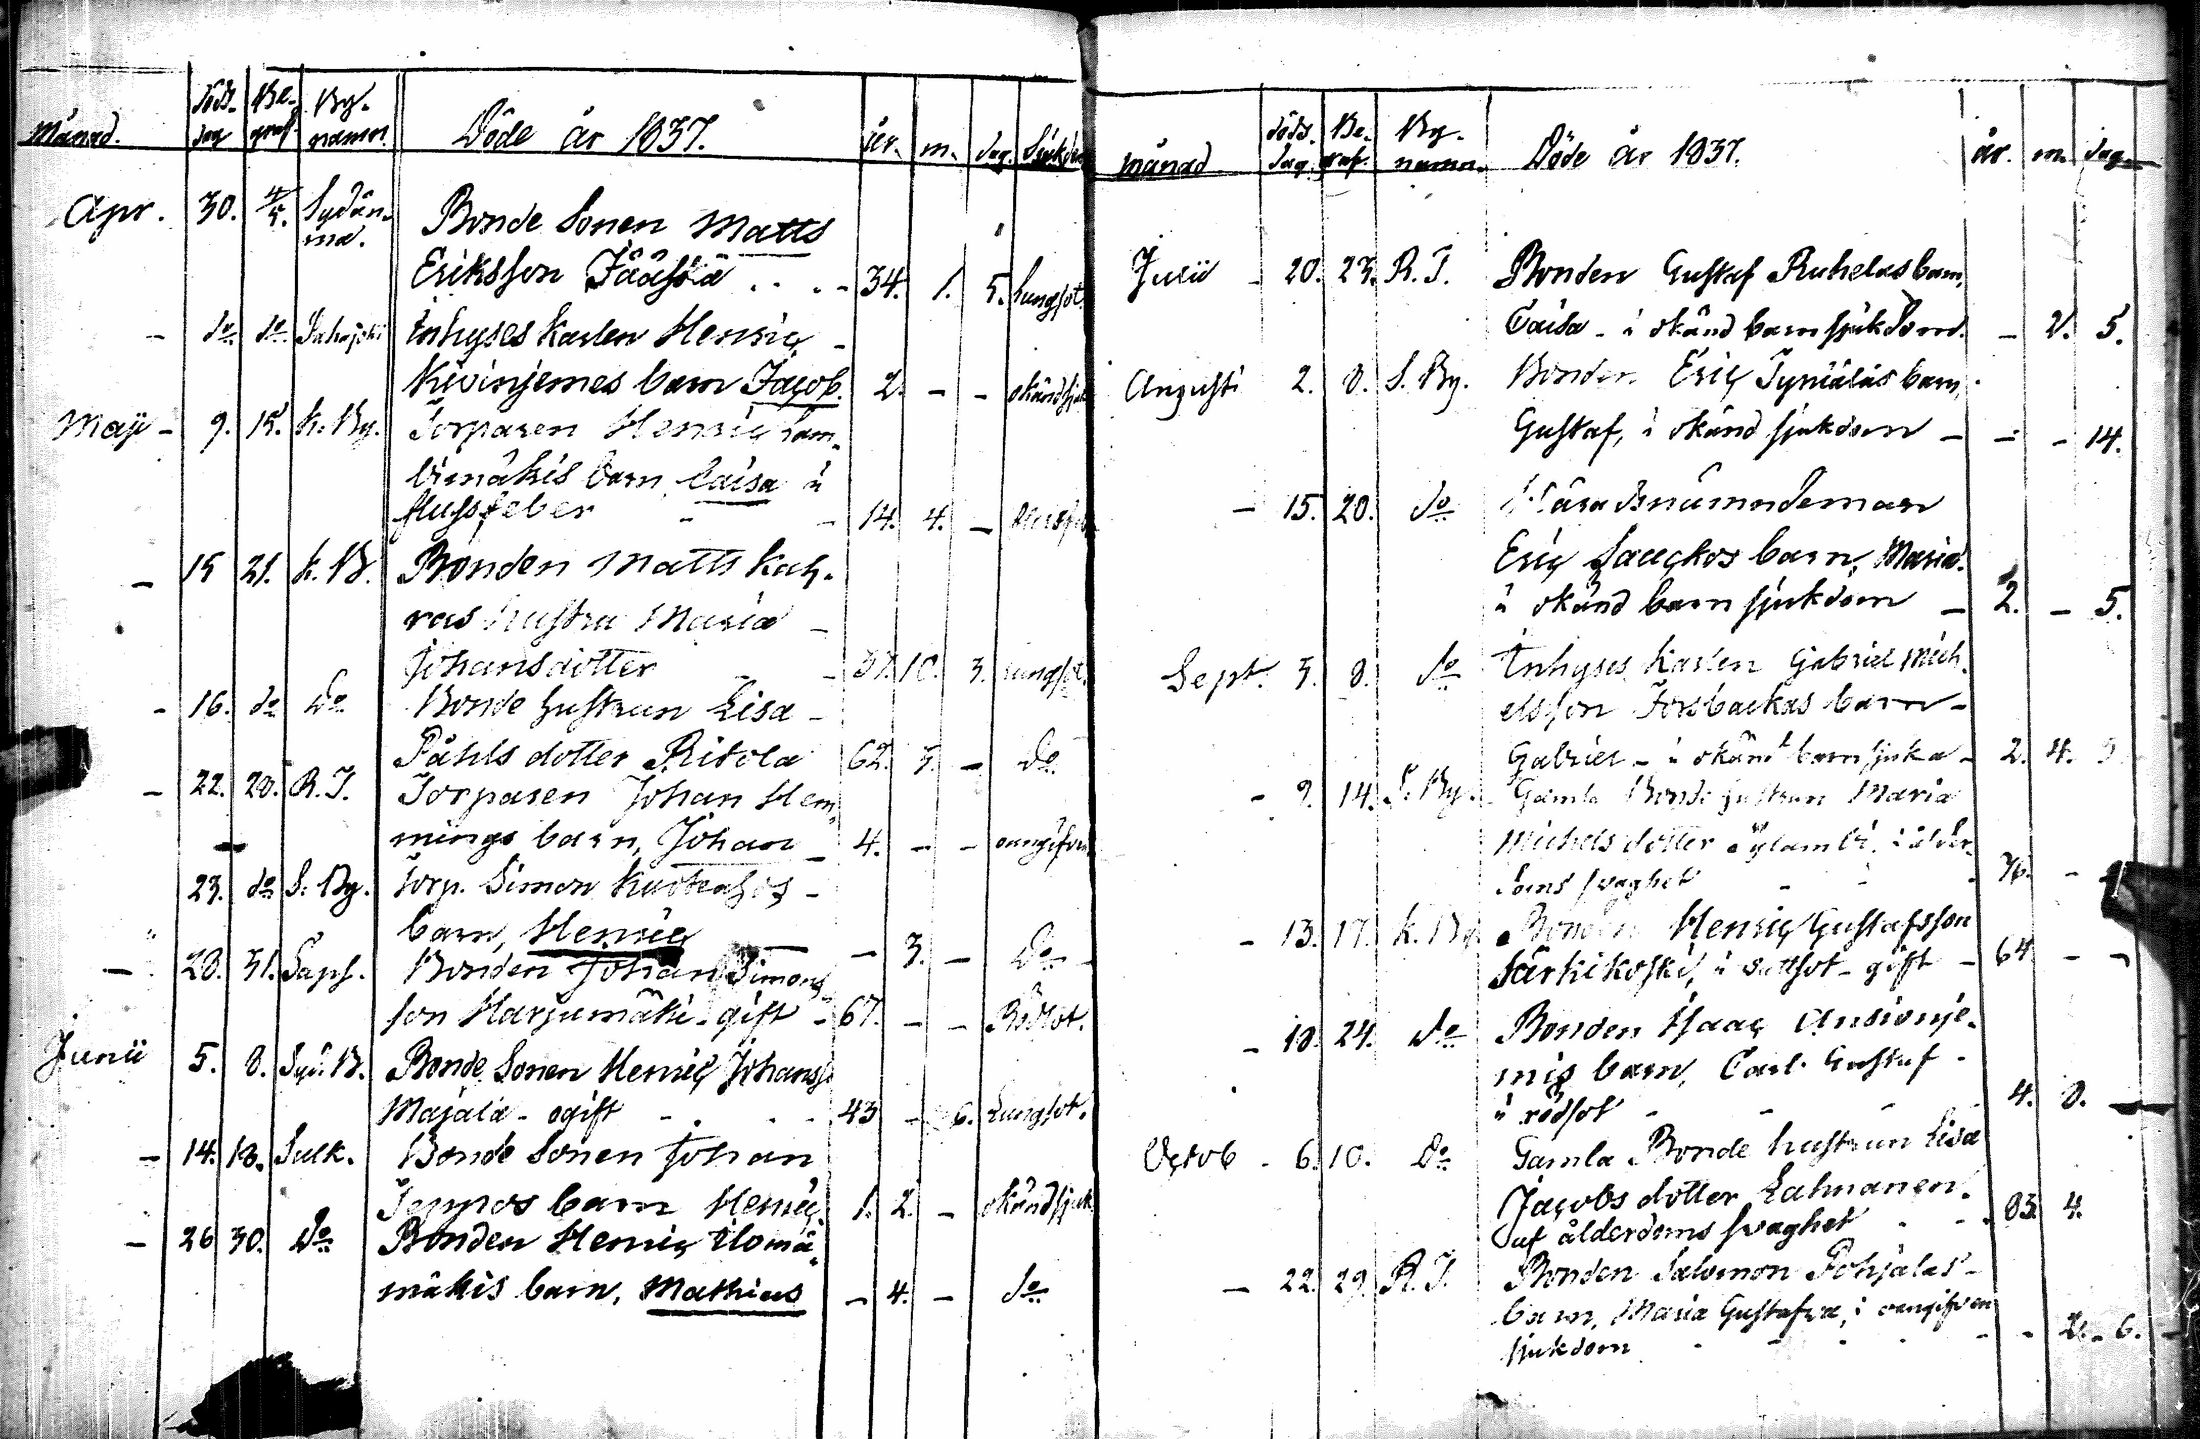 Månad. Döds- dag Be- graf. By- namn. Döde år 1837. år. m. dag. Sjukdom
Apr. 30. 4/5. Sydän- ma. Bonde Sonen Matts
Eriksson Jääskä . . . - 34. 1. 5. lungsot.
- do do Inhyses karlen Henric -
Kivinjemes barn Jacob. 2. - - okänd sjuk
Maji - 9. 15. K. By. Torparen Henric Lam-
bimäkis barn, Caisa i
flussfeber - - 14. 4. -
- 15 21. K. B. Bonden Matts Kah-
ras hustru Maria -
Johansdotter - 37. 10. 3. lungsot.
- 16. do Do Bonde hustrun Lisa -
Påhls dotter Ritola 62. 3. - Do
- 22. 28. R. J. Torparen Johan Hem-
mings barn, Johan - 4. - - oangifven
23. do S. By. Torp. Simon
barn, Henric - 3. - Do -
- 28. 31. Saps. Bonden Johan Simons
son Harjumäki - gift - 67. - - Rödsot.
Junii 5. 8. Syd. B. Bonde Sonen Henric Johanss.
Majala - ogift - . - - 43 - 6. Lungsot.
- 14. 18. Sulk. Bonde Sonen Johan
Jeppos barn Henric. 1. 2. - okänd sjuk
- 26 30. Do Bonden Henric Ilomä-
mäkis barn, Mathias - 4. - do
månad döds dag. Be- graf. By- namn. Döde år 1837. år. m. dag.
Julii - 20. 23. R. J. Bonden Gustaf Ruhelas barn,
Caisa - i okänd barnsjukdom. - 2. 5.
Augusti 2. 8. S. By. Bonden Eric Tyniäläs barn,
Gustaf, i okänd sjukdom - - - 14.
- 15. 20. do Häradsnämndeman
Eric Sauckos barn, Maria.
i okänd barnsjukdom - 2. - 5.
Sept. 3. 8. do Inhyses karlen Gabriel Mich-
elsson Forsbackas barn -
Gabriel - i okänd barnsjuka - 2. 4. 5
- 9. 14. S. By. Gamla Bonde hustrun Maria
Michels dotter Öylambi, i ålder-
doms svaghet - - - 76. - -
- 13. 17. K. By. Bonden Henric Gustafsson
Särkikoski, i - gift - 64 - -
- 18. 24. do Bonden Isaac Ansionje-
mis barn, Carl Gustaf -
i rödsot - - - 4. 8. -
Octob - 6. 10. Do Gamla Bonde hustrun Lisa
Jacobs dotter Lahnanen.
af ålderdoms svaghet - - 83. 4.
- 22. 29. R. J. Bonden Salomon Pohjalas -
barn, Maria Gustafva, i oangifven
sjukdom - - - - - - 2. - 6.